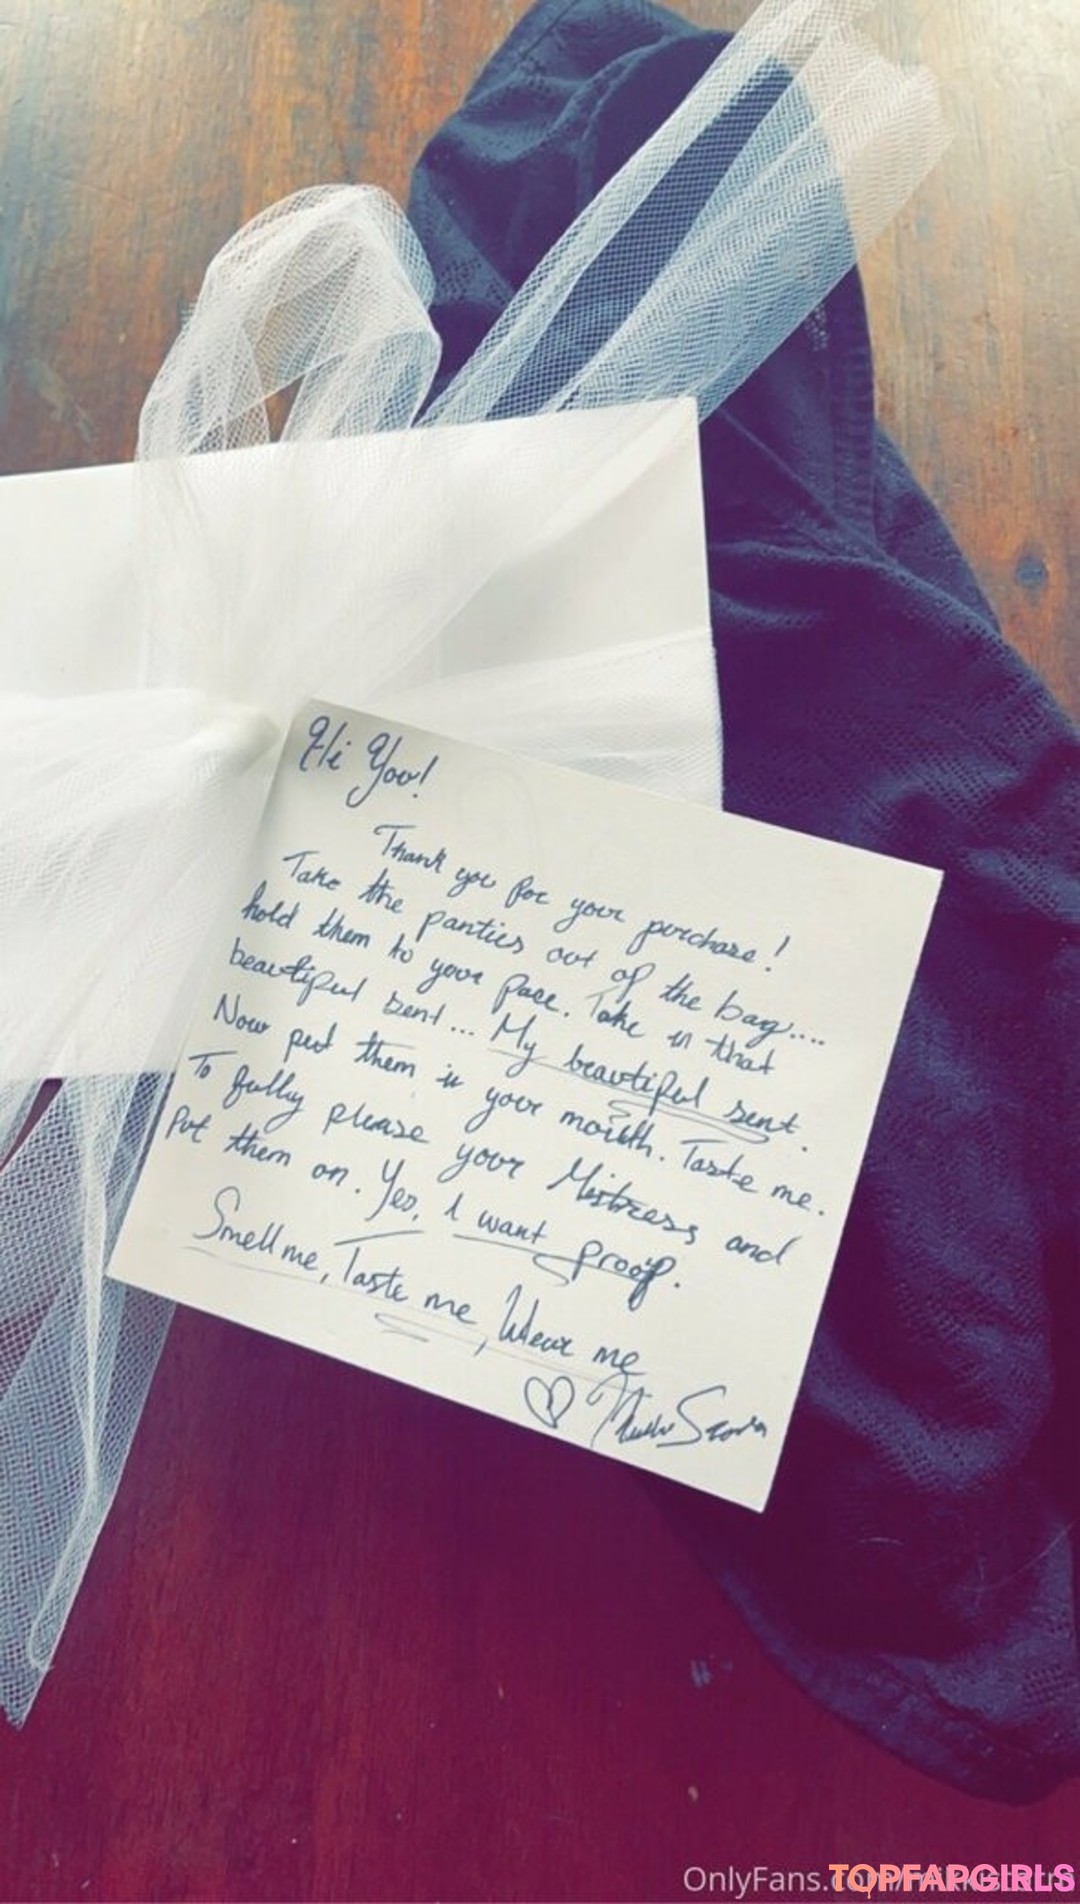 Hi You!
Thank you for your purchase!
Take the panties out of the bag....
hold them to your face. Take in that
beautiful sent... My beautiful sent.
Now put them in your mouth. Taste me.
To fully please your Mistress and
Put them on. Yes, I want proof.
Smell me, Taste me, Wear me
OnlyFans.
TOPFAPGIRLS